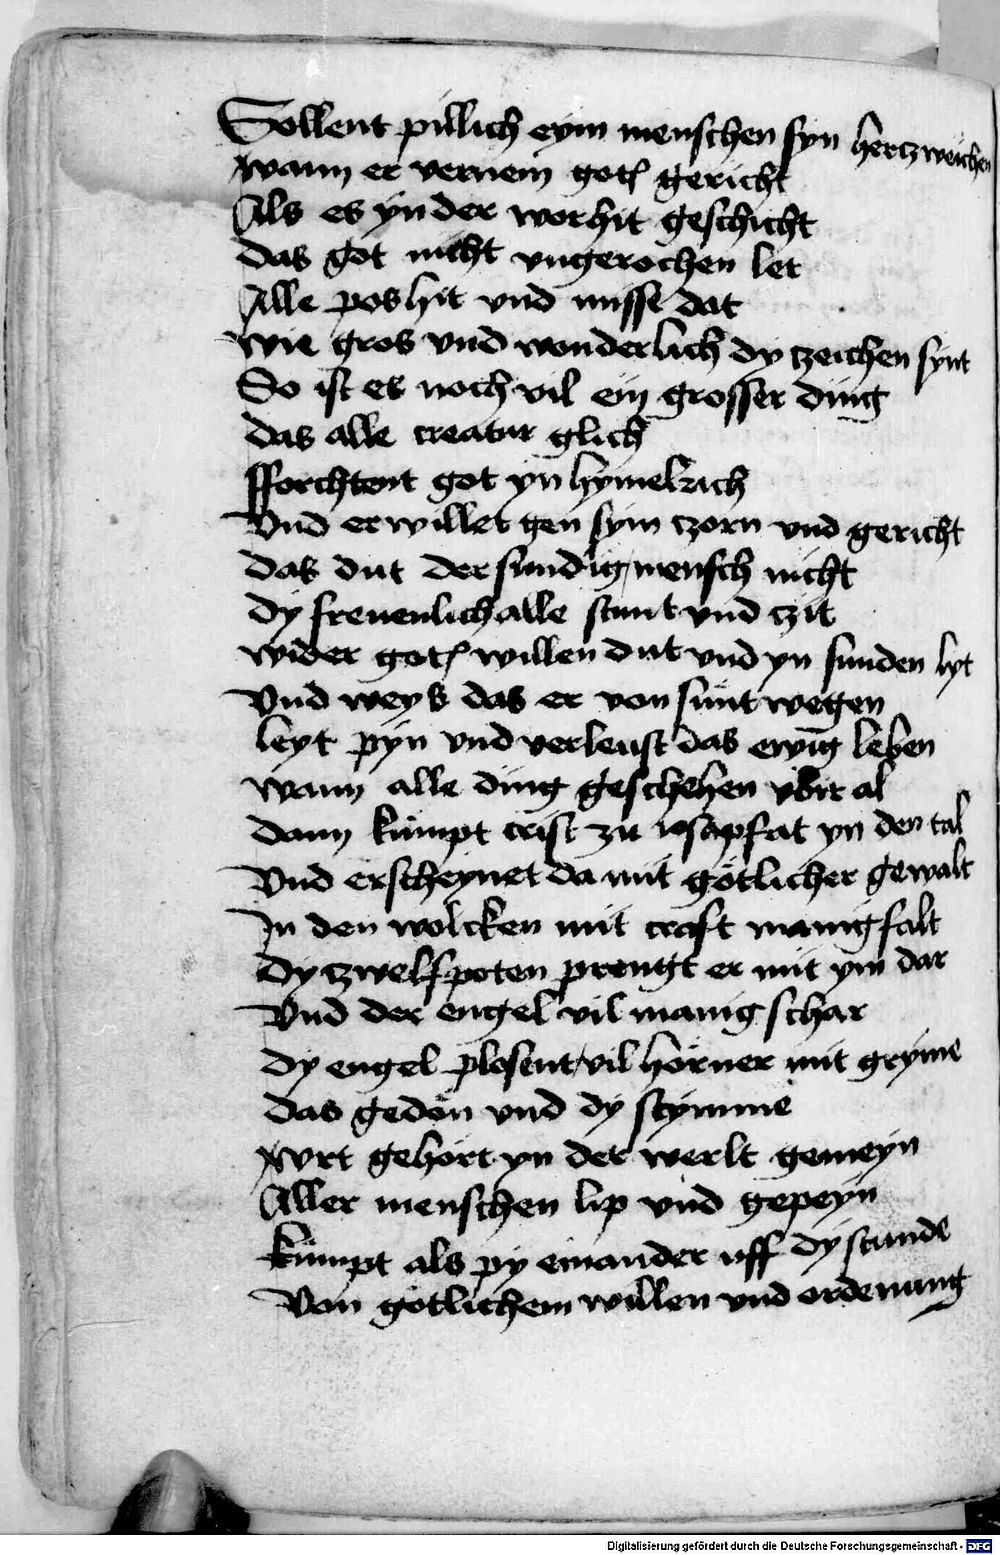 Sollent pillich eym menschen syn hertz weichen
wann er vernem gotꝭ gericht
Als es yn der worhit geschicht
das got nicht vngerochen let
Alle poshit vnd misse dat
wie gros vnd wonderlich dy tzeichen synt
So ist es noch vil ein grosser ding
das alle creatur glich
fforchtent got yn hymelrich
Vnd erwillet gen sym czorn vnd gericht
das dut der sundig mensch nicht
dy freuenlich alle stunt vnd czit
wider gotꝭ willen dut vnd yn sunden lyt
Vnd weys das er von sunt wegen
leyt pyn vnd verleust das ewig leben
wann alle ding geschehen vbir al
dann kumpt crist zu iosapfat yn den tal
Vnd erscheynet da mit gotlicher gewalt
In den wolcken mit craft manigfalt
dy tzwelfpoten prengt er mit ym dar
Vnd der engel vil manig schar
dy engel plosent vil horner mit gryme
das gedon vnd dy stymme
wrt gehort yn der werlt gemeyn
Aller menschen lip vnd gepeyn
kumpt als py einander uff dy stunde
Von gotlichem willen vnd ordenung
Digitalisierung gefördert durch die Deutsche Forschungsgemeinschaft - DFG